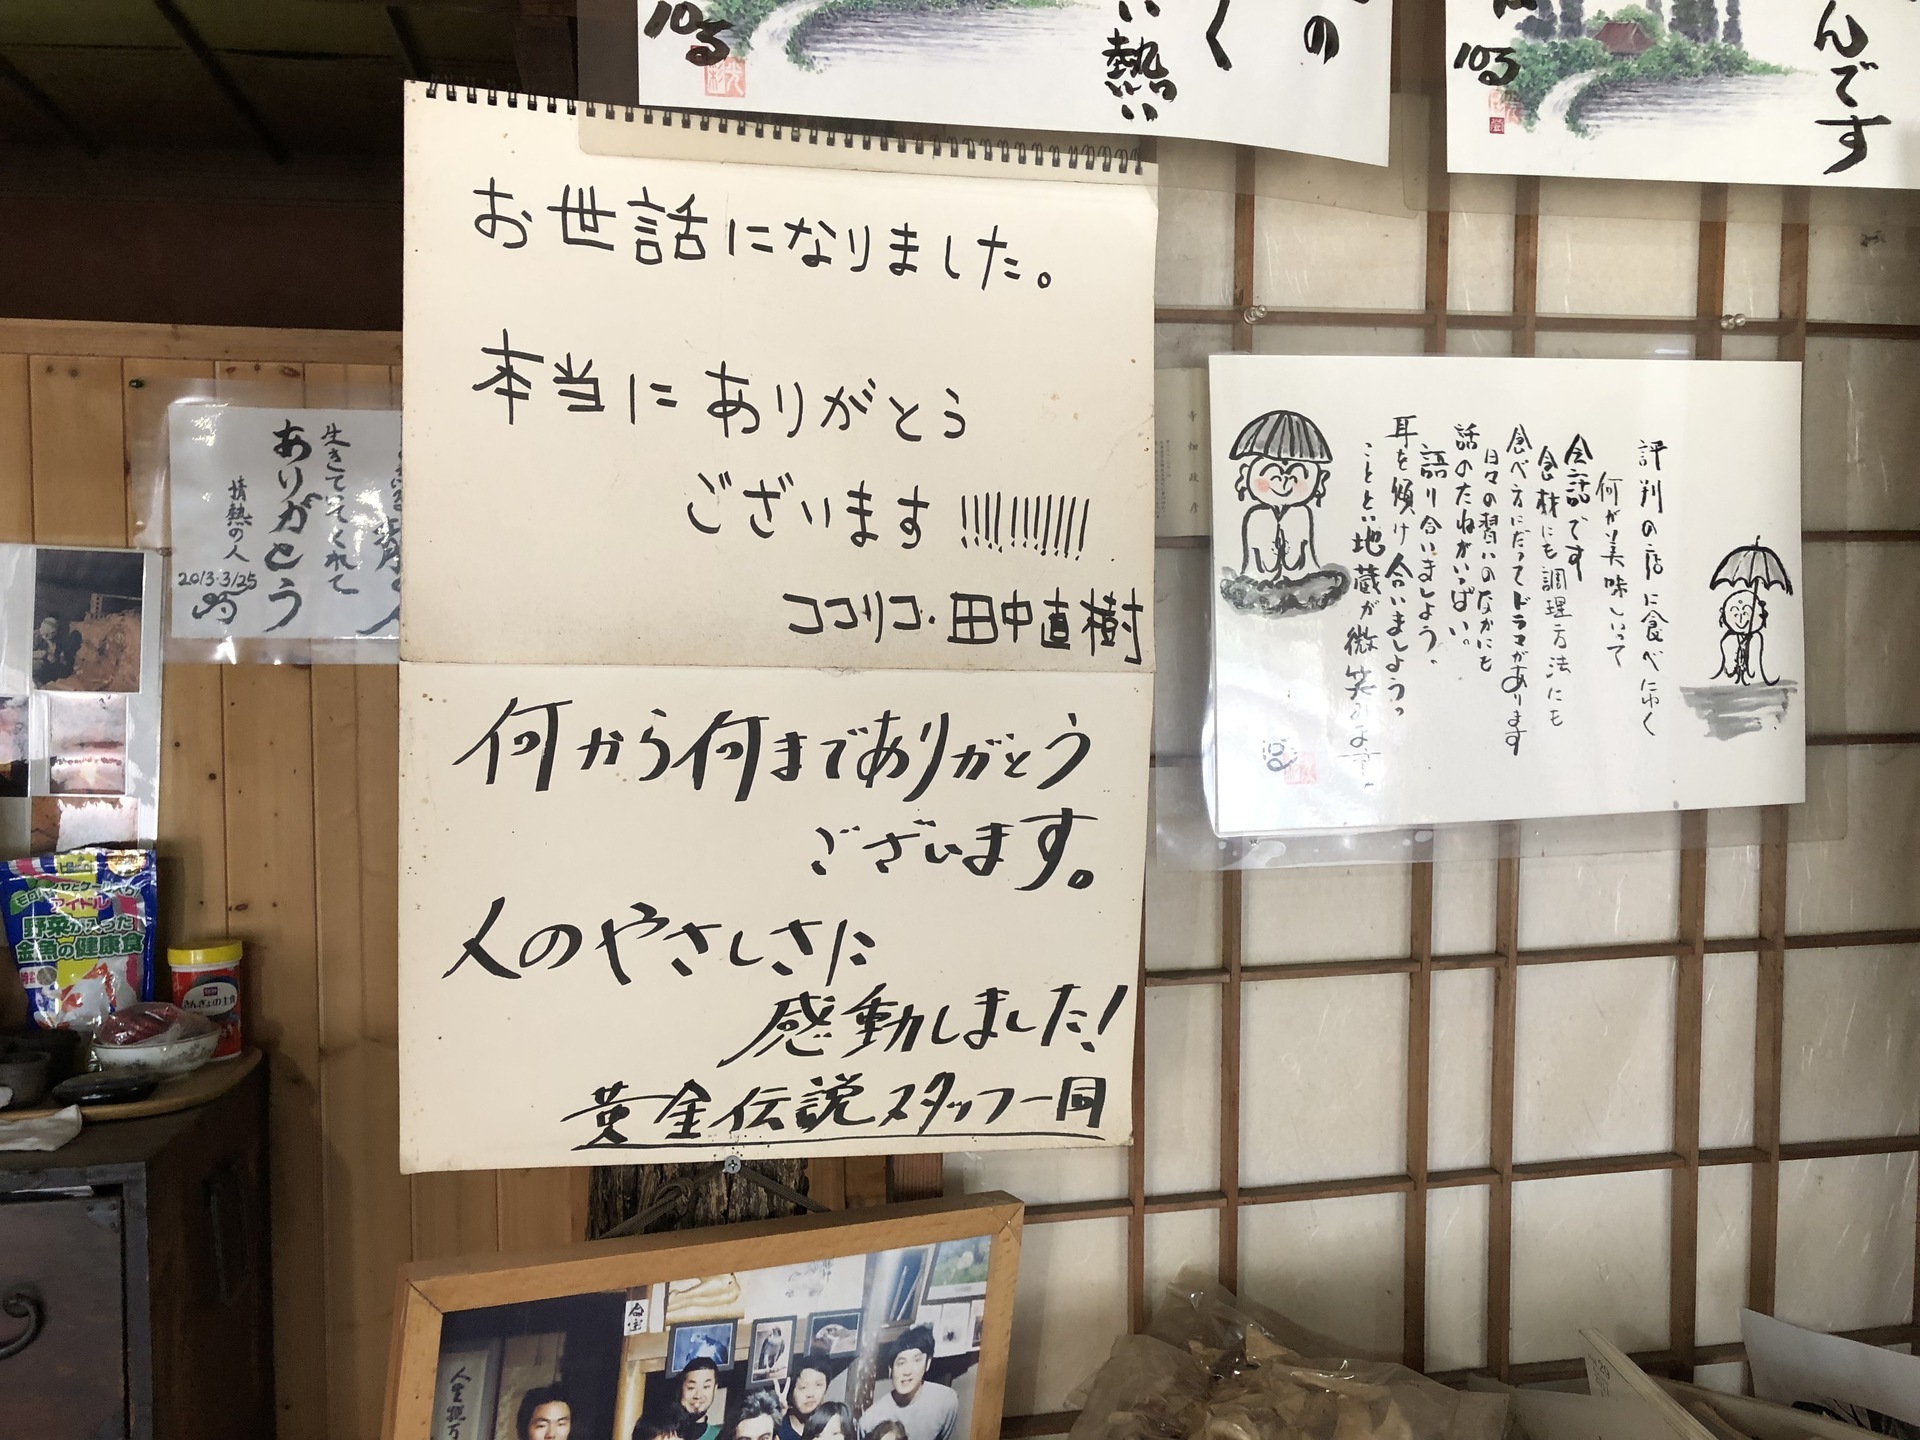 103
い熱い
く
の
103
んです
お世話になりました。
本当にありがとう
ございます!!!!!!!!!!!
ココリコ・田中直樹
何から何までありがとう
ございます。
人のやさしさに
感動しました!
黄金伝説スタッフ一同
生きていてくれて
ありがとう
情熱の人
2013.3/25
評判の店に食べに行く
何が美味しいって
会話です
食材にも調理方法にも
食べ方にだってドラマがあります
日々の習いのなかにも
話のたねがいっぱい。
語り合いましょう。
耳を傾け合いましょうっ
こととい地蔵が微笑みます。
寺畑政彦
アイドル
野菜が入った
金魚の健康食
きんぎょの主食